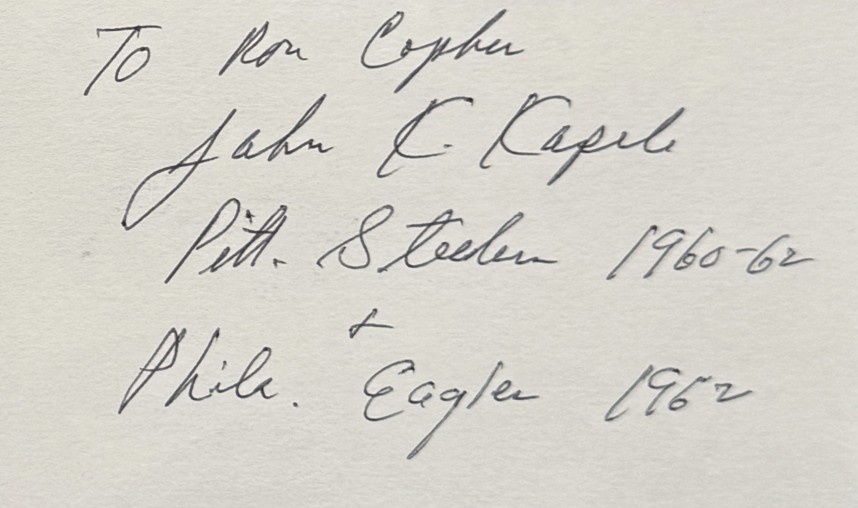 To Ron Copher
John K. Kapele
Pitt. Steelers 1960-62
+
Phila. Eagles 1962